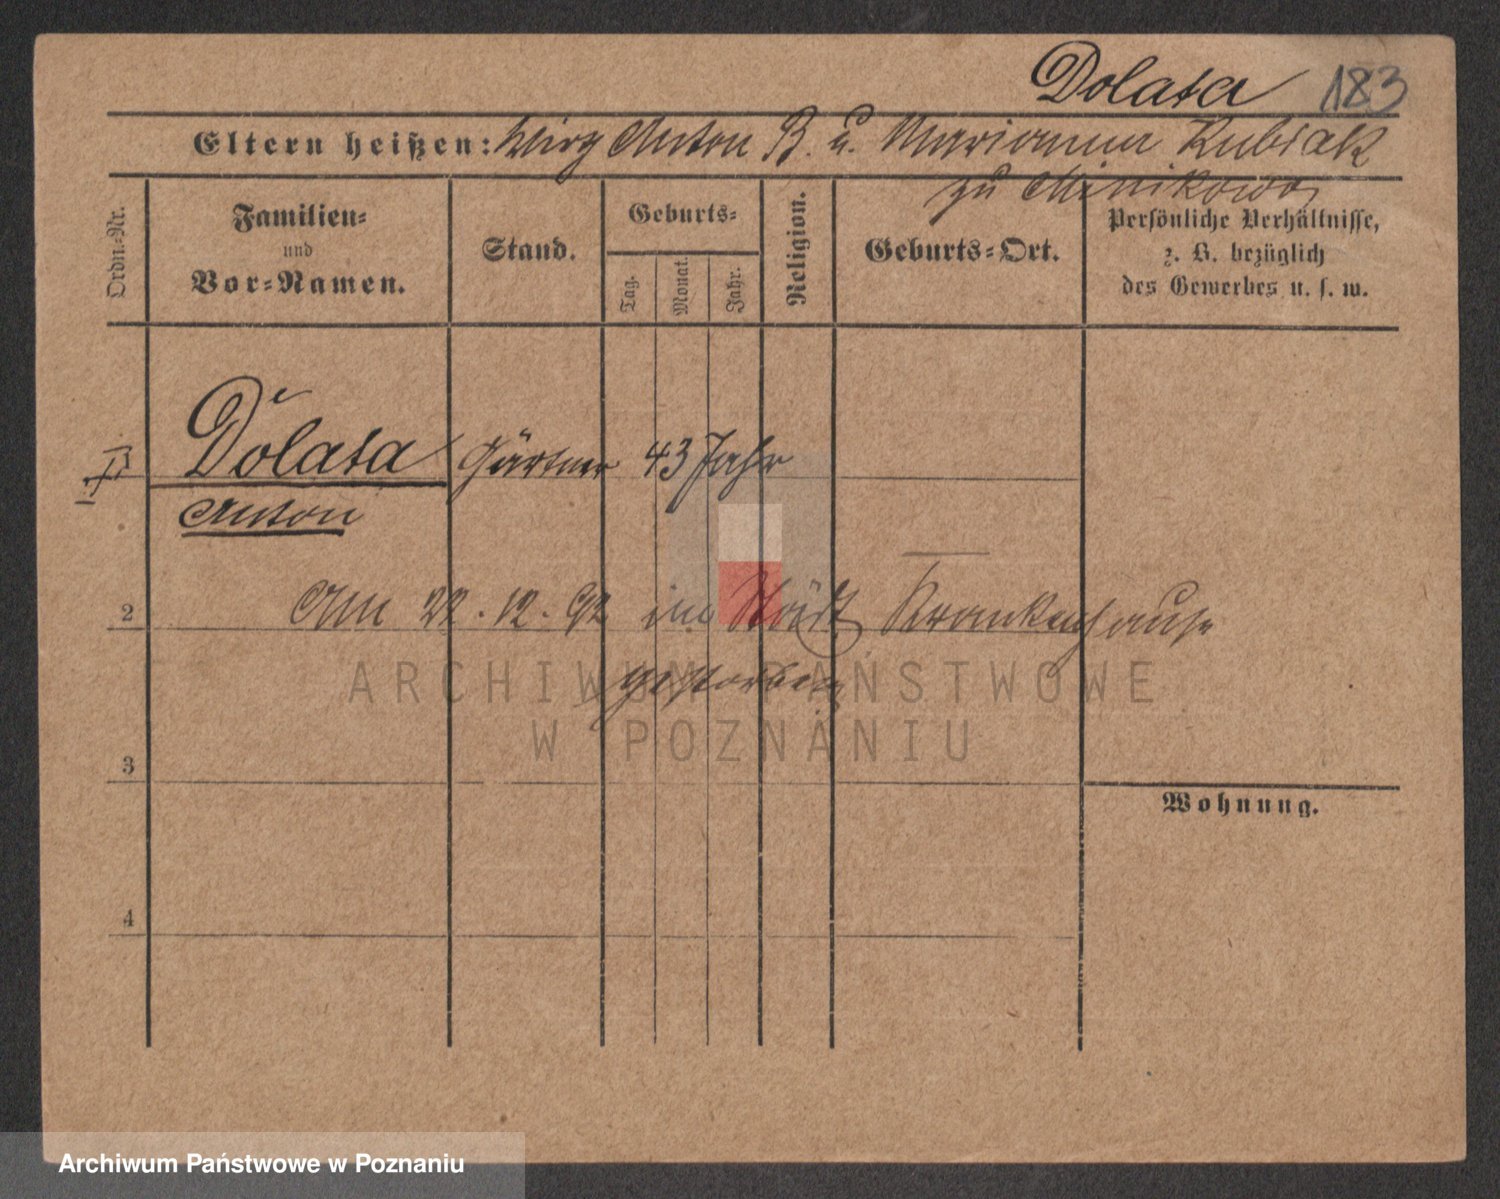 Dolata 183
Eltern heißen: Anton B. u. Marianna Kubiak
zu Minikowo
Ordn.-Nr.
Familien-
und
Vor-Namen.
Stand.
Geburts-
Tag.
Monat.
Jahr.
Religion.
Geburts-Ort.
Persönliche Verhältnisse,
z. B. bezüglich
des Gewerbes u. s. w.
Dolata Gärtner 43 Jahr
Anton
2 Am 22.12.92 im Städt Krankenhause
gestorben
ARCHIWUM PAŃSTWOWE
W POZNANIU
3
Wohnung.
4
Archiwum Państwowe w Poznaniu